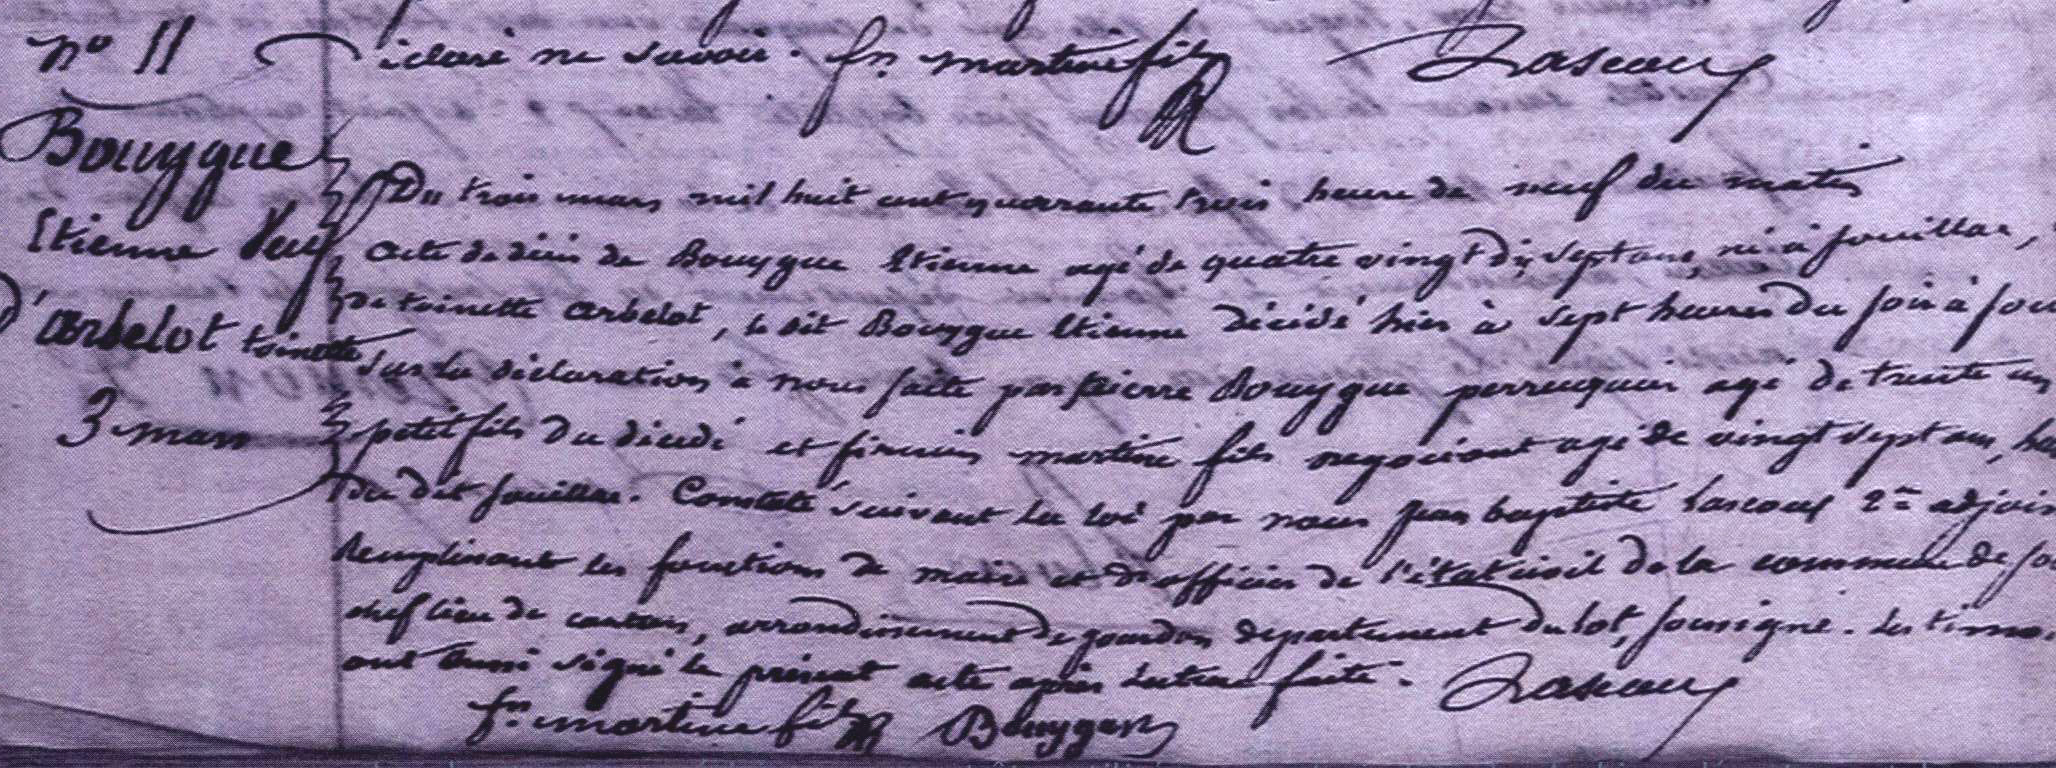 n° 11
Bouygue
Etienne veuf
d'arbelot toinette
3 mars
déclaré ne savoir. fn martine fils Lascoux
Du trois mars mil huit cent quarante trois heure de neuf du matin
acte de décès de Bouygue Etienne agé de quatre vingt dix sept ans, né à souillac,
de toinette arbelot, le dit Bouygue Etienne décédé hier à sept heures du soir à
sur la déclaration à nous faite par pierre Bouygue perruquier agé de trente
petit fils du décédé et firmin martine fils negociant agé de vingt sept ans,
du dit souillac. Constaté suivant la loi par nous jean baptiste Lascoux 2me
remplissant les fonctions de maire et d'officier de l'état civil de la commune de
chef lieu de canton, arrondissement de gourdon département du lot, soussigné. Les
ont aussi signé le présent acte après lecture faite. Lascoux
fn martine fils Bouygue